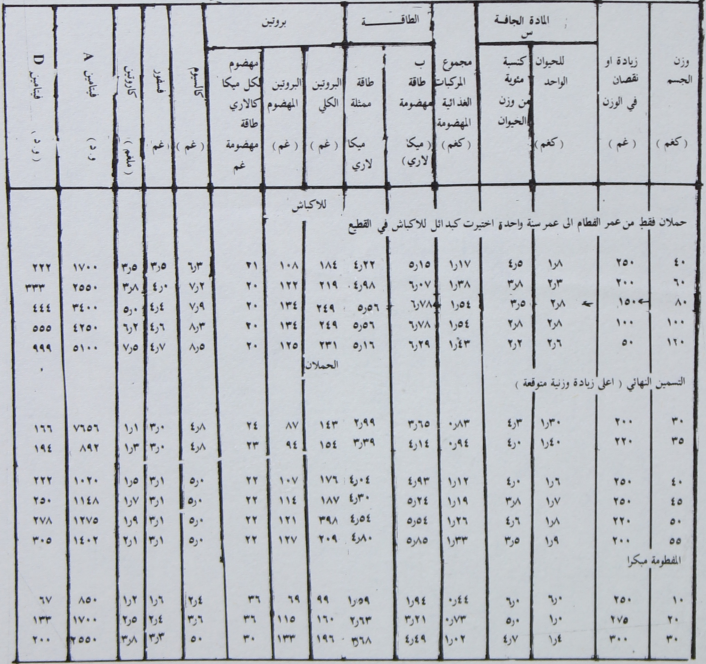 المادة الجافة الطاقــة بروتين
س
وزن زيادة او للحيوان كنسبة مجموع ب طاقة البروتين البروتين مهضوم كالسيوم فسفور كاروتين فيتامين A فيتامين D
الجسم نقصان الواحد مئوية المركبات طاقة ممثلة الكلي المهضوم لكل ميكا
في الوزن من وزن الغذائية مهضومة كالاري
الحيوان المهضومة طاقة
(كغم) (غم) (كغم) (كغم) (ميكا ميكا (غم) (غم) مهضومة (غم) (غم) (ملغم) و د) (و د)
لاري) لاري غم
للاكباش
حملان فقط من عمر الفطام الى عمر سنة واحدة اختيرت كبدائل للاكباش في القطيع
٤٠ ٢٥٠ ١٫٨ ٤٫٥ ١٫١٧ ٥٫١٥ ٤٫٢٢ ١٨٤ ١٠٨ ٢١ ٦٫٣ ٣٫٥ ٣٫٥ ١٧٠٠ ٢٢٢
٦٠ ٢٠٠ ٢٫٣ ٣٫٨ ١٫٣٨ ٦٫٠٧ ٤٫٩٨ ٢١٩ ١٢٢ ٢٠ ٧٫٢ ٤٫٠ ٣٫٨ ٢٥٥٠ ٣٣٣
٨٠ ١٥٠ ٢٫٨ ٣٫٥ ١٫٥٤ ٦٫٧٨ ٥٫٥٦ ٢٤٩ ١٣٤ ٢٠ ٧٫٩ ٤٫٤ ٥٫٠ ٣٤٠٠ ٤٤٤
١٠٠ ١٠٠ ٢٫٨ ٢٫٨ ١٫٥٤ ٦٫٧٨ ٥٫٥٦ ٢٤٩ ١٣٤ ٢٠ ٨٫٣ ٤٫٦ ٦٫٢ ٤٢٥٠ ٥٥٥
١٢٠ ٥٠ ٢٫٦ ٢٫٢ ١٫٤٣ ٦٫٢٩ ٥٫١٦ ٢٣١ ١٢٥ ٢٠ ٨٫٥ ٤٫٧ ٧٫٥ ٥١٠٠ ٩٩٩
الحملان
التسمين النهائي ( اعلى زيادة وزنية متوقعة )
٣٠ ٢٠٠ ١٫٣٠ ٤٫٣ ٠٫٨٣ ٣٫٦٥ ٢٫٩٩ ١٤٣ ٨٧ ٢٤ ٤٫٨ ٣٫٠ ١٫١ ٧٦٥٦ ١٦٦
٣٥ ٢٢٠ ١٫٤٠ ٤٫٠ ٠٫٩٤ ٤٫١٤ ٣٫٣٩ ١٥٤ ٩٤ ٢٣ ٤٫٨ ٣٫٠ ١٫٣ ٨٩٢ ١٩٤
٤٠ ٢٥٠ ١٫٦ ٤٫٠ ١٫١٢ ٤٫٩٣ ٤٫٠٤ ١٧٦ ١٠٧ ٢٢ ٥٫٠ ٣٫١ ١٫٥ ١٠٢٠ ٢٢٢
٤٥ ٢٥٠ ١٫٧ ٣٫٨ ١٫١٩ ٥٫٢٤ ٤٫٣٠ ١٨٧ ١١٤ ٢٢ ٥٫٠ ٣٫١ ١٫٧ ١١٤٨ ٢٥٠
٥٠ ٢٢٠ ١٫٨ ٤٫٦ ١٫٢٦ ٥٫٥٤ ٤٫٥٤ ٣٩٨ ١٢١ ٢٢ ٥٫٠ ٣٫١ ١٫٩ ١٢٧٥ ٢٧٨
٥٥ ٢٠٠ ١٫٩ ٣٫٥ ١٫٣٣ ٥٫٨٥ ٤٫٨٠ ٢٠٩ ١٢٧ ٢٢ ٥٫٠ ٣٫١ ٢٫١ ١٤٠٢ ٣٠٥
المفطومة مبكرا
١٠ ٢٥٠ ٦٫٠ ٦٫٠ ٠٫٤٤ ١٫٩٤ ١٫٥٩ ٩٩ ٦٩ ٣٦ ٢٫٤ ١٫٦ ١٫٢ ٨٥٠ ٦٧
٢٠ ٢٧٥ ١٫٠ ٥٫٠ ٠٫٧٣ ٣٫٢١ ٢٫٦٣ ١٦٠ ١١٥ ٣٦ ٣٫٦ ٢٫٤ ٢٫٥ ١٧٠٠ ١٣٣
٣٠ ٣٠٠ ١٫٤ ٤٫٧ ١٫٠٢ ٤٫٤٩ ٣٫٦٨ ١٩٦ ١٣٣ ٣٠ ٥٠ ٣٫٣ ٣٫٨ ٢٥٥٠ ٢٠٠